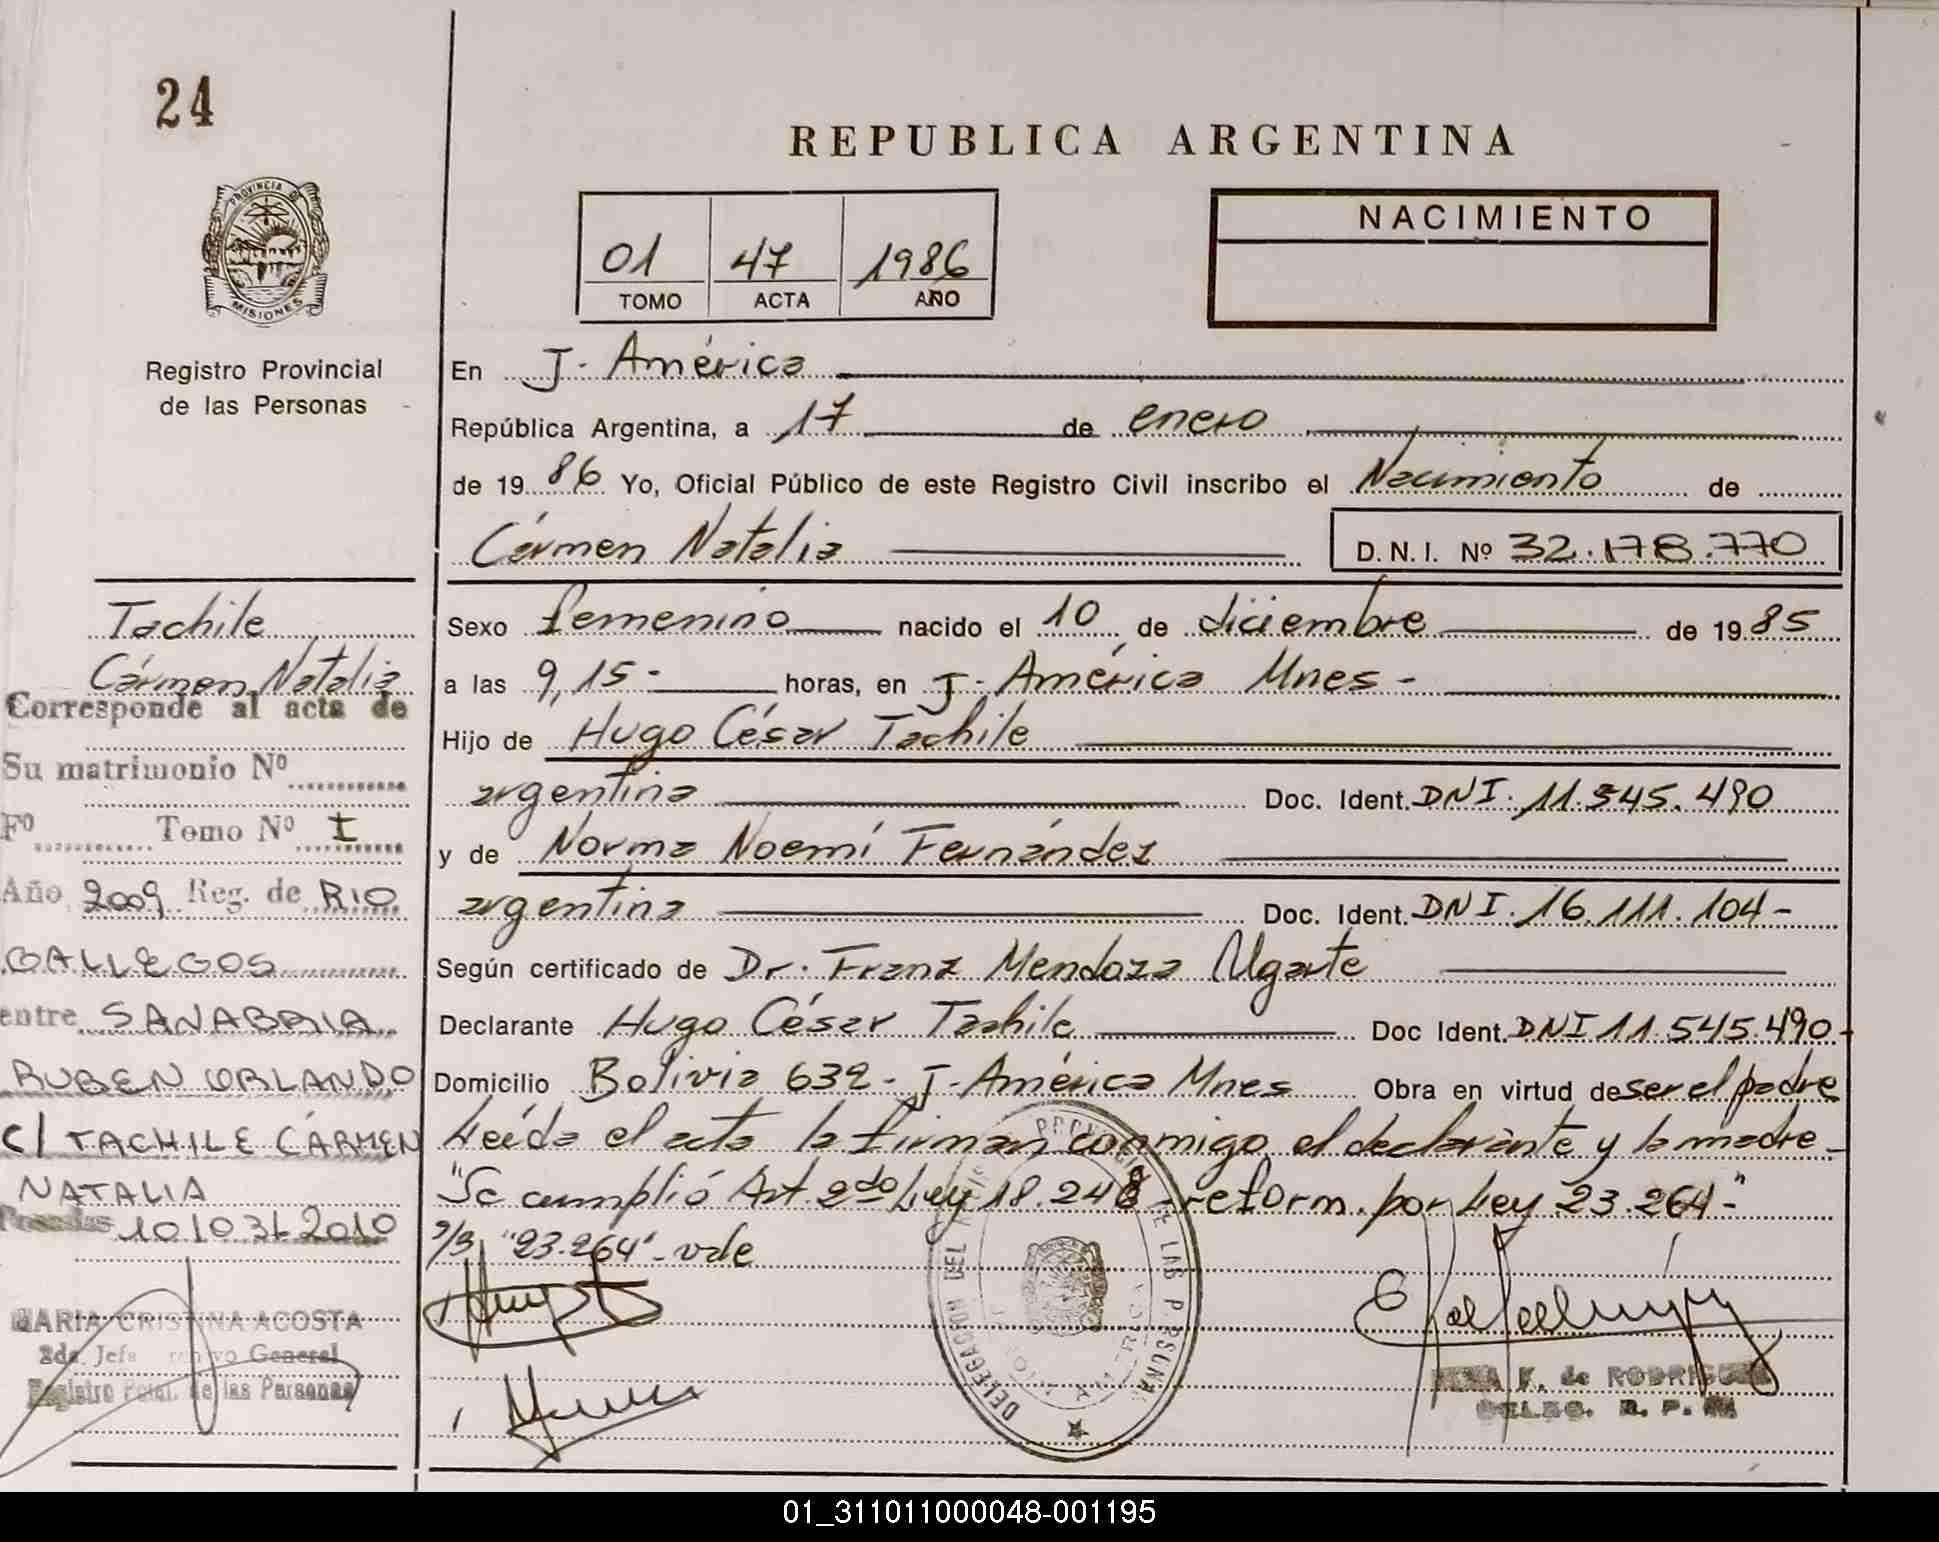 24
REPUBLICA ARGENTINA
PROVINCIA DE
MISIONES
Registro Provincial
de las Personas
01 47 1986
TOMO ACTA AÑO
NACIMIENTO
En J. América
República Argentina, a 17 de enero
de 19 86 Yo, Oficial Público de este Registro Civil inscribo el Nacimiento de
Cármen Natalia D.N.I. Nº 32.178.770
Sexo femenino nacido el 10 de diciembre de 19 85
a las 9,15- horas, en J. América Mnes-
Hijo de Hugo César Tachile
argentina Doc. Ident. DNI. 11.545.490
y de Norma Noemí Fernández
argentina Doc. Ident. DNI. 16.111.104-
Según certificado de Dr. Franz Mendoza Ugarte
Declarante Hugo César Tachile Doc Ident. DNI 11.545.490-
Domicilio Bolivia 632- J-América Mnes Obra en virtud de ser el padre
Leída el acta la firman conmigo el declarante y la madre-
"Se cumplió Art. 2do Ley 18.248 -reform. por Ley 23.264-"
s/s "23.264"-vale
Tachile
Cármen Natalia
Corresponde al acta de
Su matrimonio Nº
Fº Tomo Nº I
Año 2009 Reg. de RIO
GALLEGOS
entre SANABRIA
RUBEN ORLANDO
C/ TACHILE CÁRMEN
NATALIA
Posadas 10/03/2010
MARIA CRISTINA ACOSTA
2da. Jefa General
Registro Pcial. de las Personas
DELEGACION DEL REGISTRO PROVINCIAL DE LAS PERSONAS
K. de RODRIGUEZ
DELEG. R. P.
01_311011000048-001195